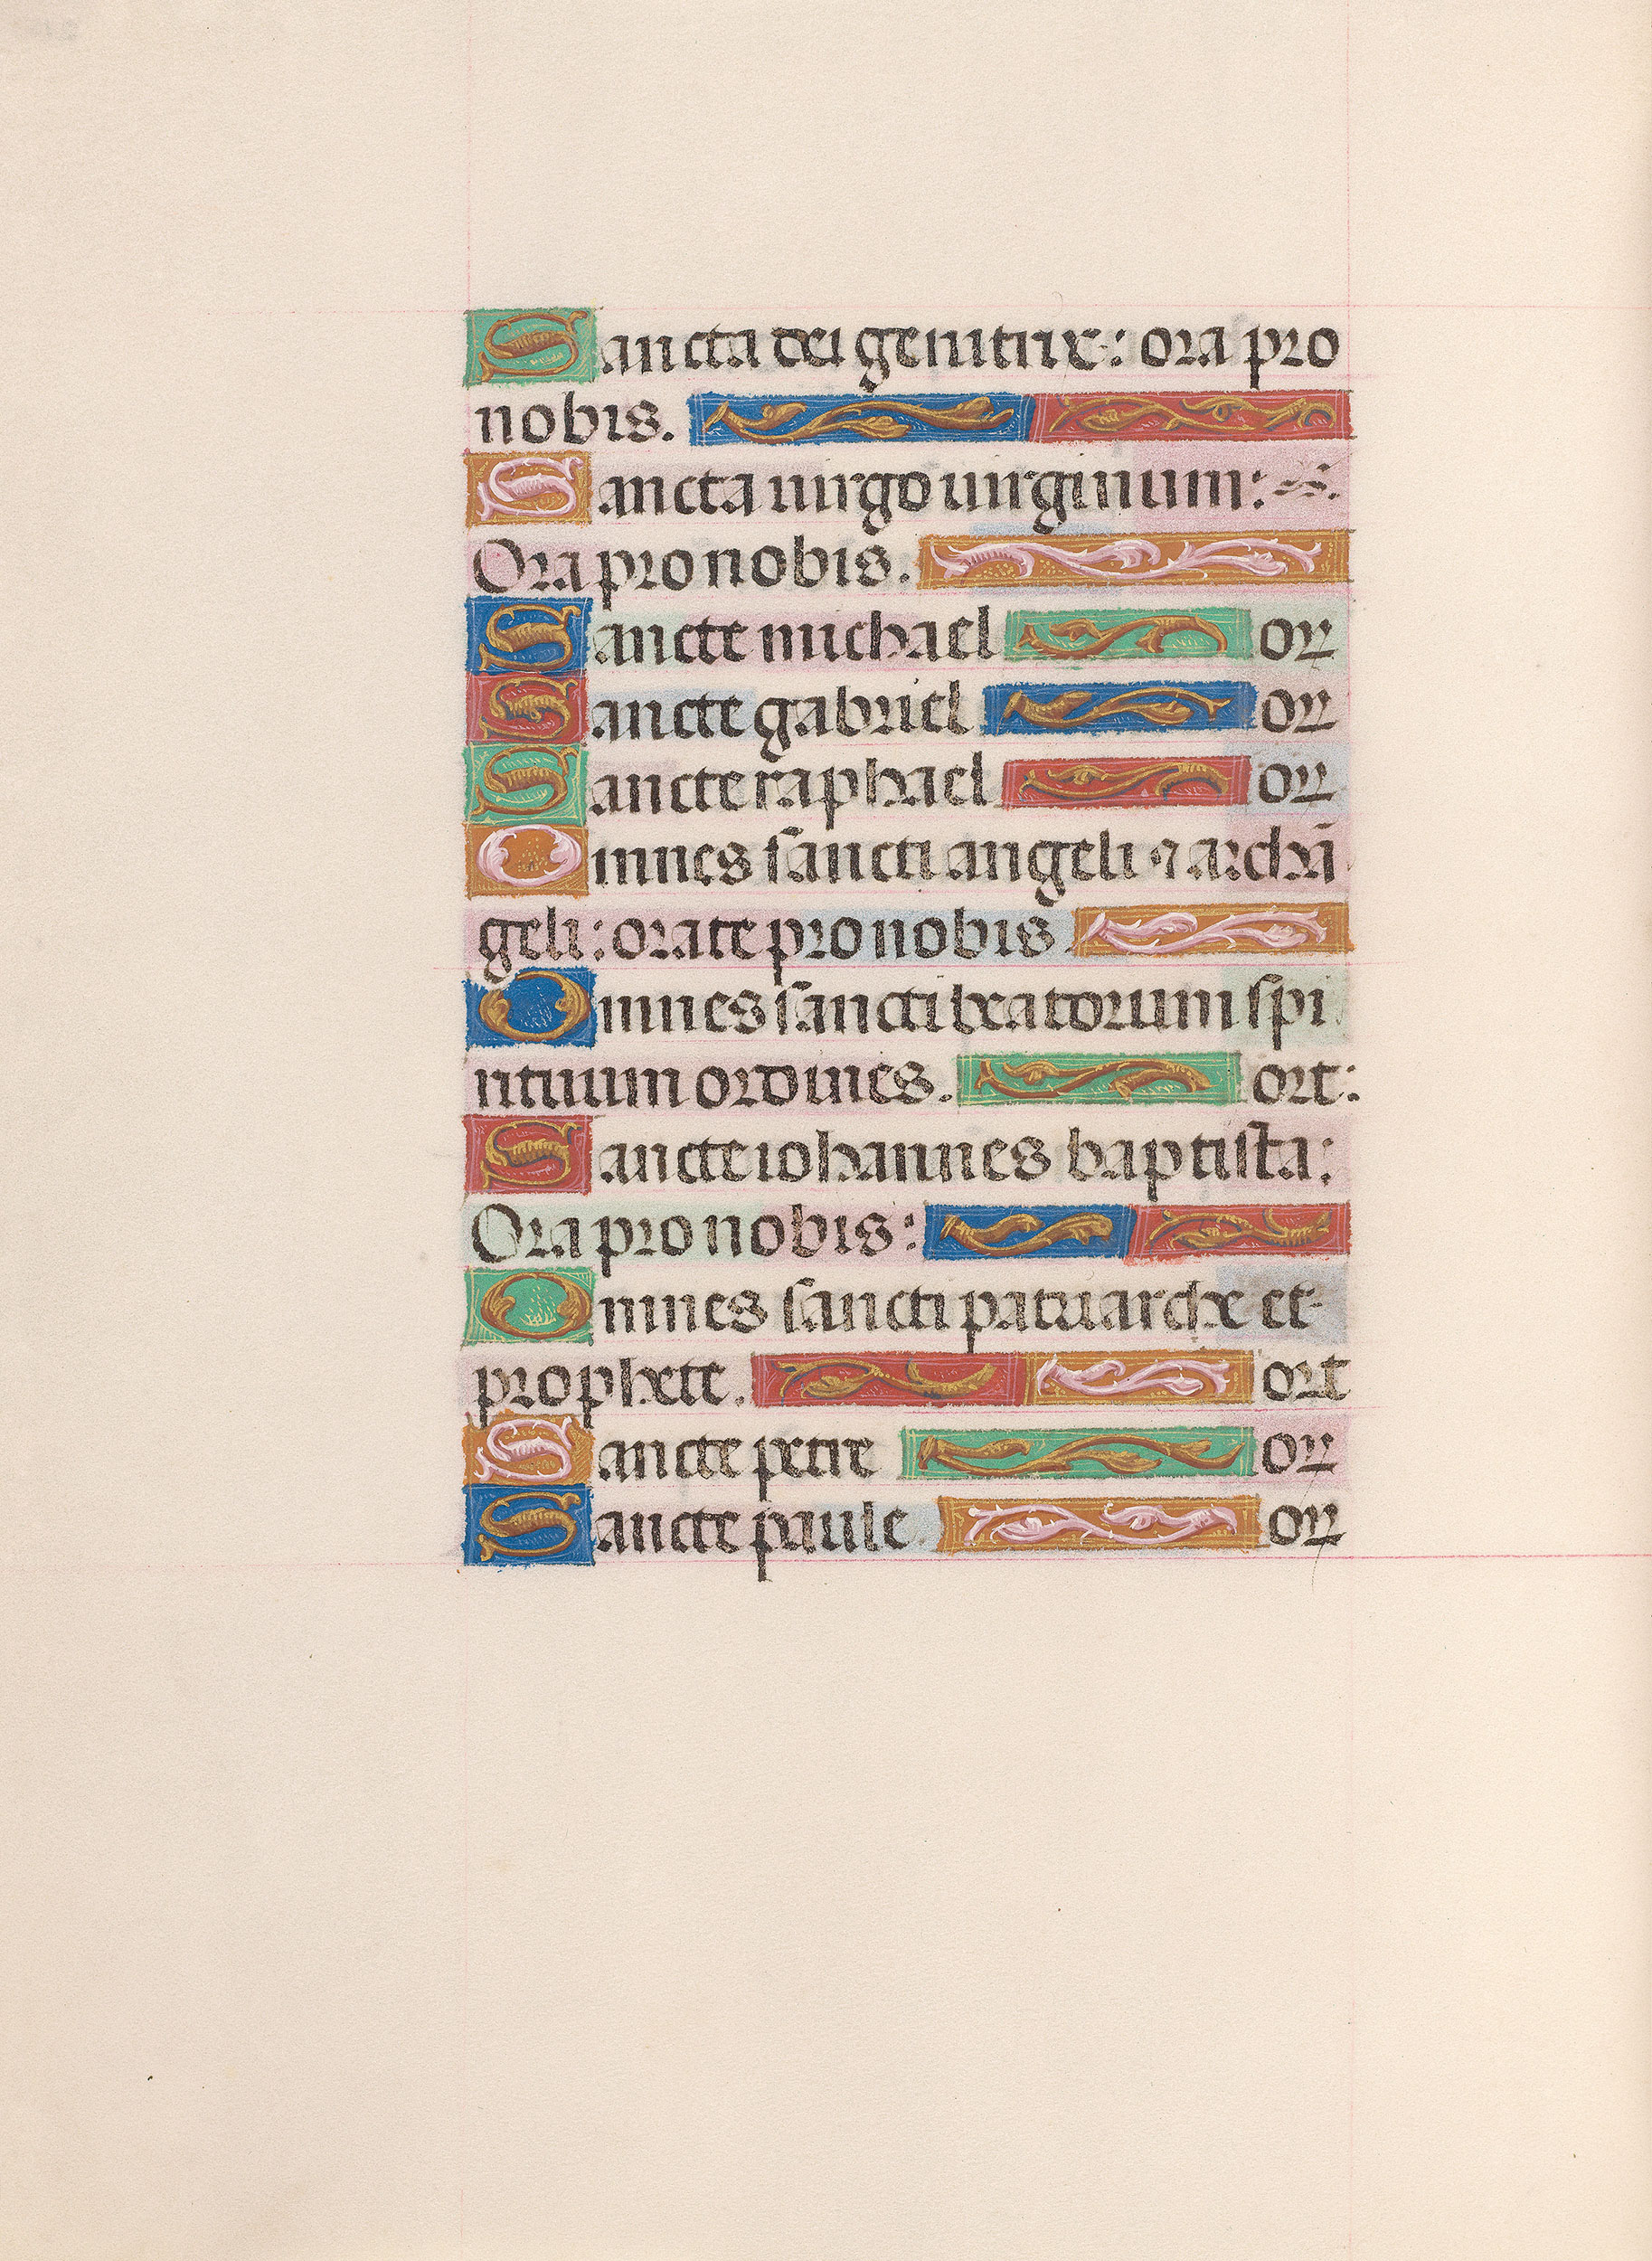 Sancta dei genitrix: ora pro
nobis.
Sancta uirgo uirginum:
Ora pro nobis.
Sancte michael or
Sancte gabriel or
Sancte raphael or
Omnes sancti angeli ⁊ archā
geli: orate pro nobis
Omnes sancti beatorum spi
rituum ordines. ort:
Sancte iohannes baptista:
Ora pro nobis:
Omnes sancti patriarche et
prophete. ort
Sancte petre or
Sancte paule. or